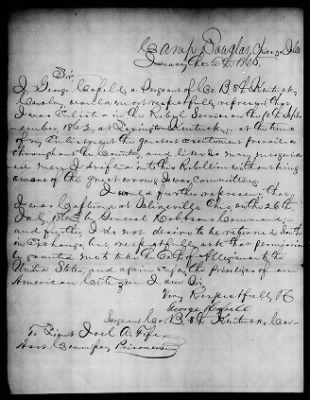 Camp Douglas, Chicago Ills
January the 6th 1865.
Sir
I George Cogill a Sergeant of Co B 8th Kentucky
Cavalry, would most respectfully represent that
I was Enlisted in the Rebel Service on the 10th Sept-
ember, 1862, at Lexington Kentucky, at the time
of my Enlistment the greatest excitement prevailed
throughout the Country, and like so many
men, I drifted into this Rebellion without being
aware of the great wrong I was committing
I would further represent that
I was Captured at Salineville Ohio on the 26th
July 1863 by General Command,
and further, I do not desire to be returned South
on Exchange but respectfully ask that permission
be granted me to take the Oath of Allegiance to the
United States, and again enjoy the privileges of an
American Citizen I am Sir
Very Respectfully
George
Sergeant Co. B. 8th Kentucky Cav.
To Lieut Joel A. Fife
Asst Commissary Prisoners